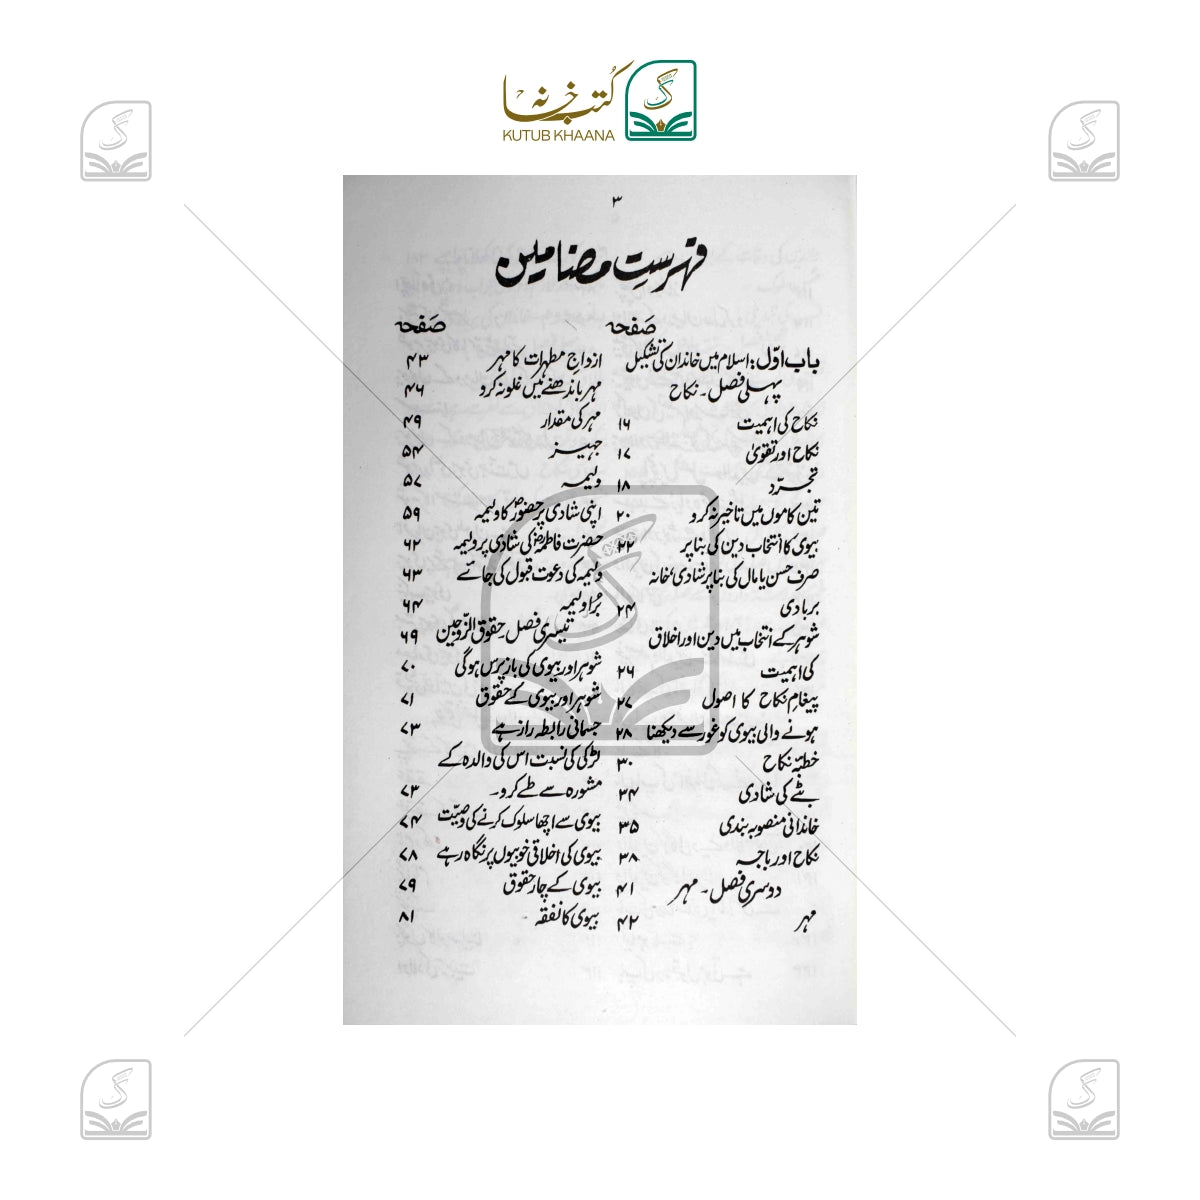 کتب خانہ
KUTUB KHAANA
۳
فہرست مضامین
صفحہ
باب اوّل: اسلام میں خاندان کی تشکیل
پہلی فصل۔ نکاح
نکاح کی اہمیت ۱۶
نکاح اور تقویٰ ۱۷
تجرّد ۱۸
تین کاموں میں تاخیر نہ کرو ۲۰
بیوی کا انتخاب دین کی بنا پر ۲۲
صرف حسن یا مال کی بنا پر شادی، خانہ
بربادی ۲۴
شوہر کے انتخاب میں دین اور اخلاق
کی اہمیت ۲۶
پیغامِ نکاح کا اصول ۲۷
ہونے والی بیوی کو غور سے دیکھنا ۲۸
خطبۂ نکاح ۳۰
بٹے کی شادی ۳۴
خاندانی منصوبہ بندی ۳۵
نکاح اور باجہ ۳۸
دوسری فصل۔ مہر ۴۱
مہر ۴۲
صفحہ
ازواجِ مطہرات کا مہر ۴۳
مہر باندھنے میں غلو نہ کرو ۴۶
مہر کی مقدار ۴۹
جہیز ۵۴
ولیمہ ۵۷
اپنی شادی پر حضورؐ کا ولیمہ ۵۹
حضرت فاطمہؓ کی شادی پر ولیمہ ۶۲
ولیمہ کی دعوت قبول کی جائے ۶۳
بُرا ولیمہ ۶۴
تیسری فصل۔ حقوق الزّوجین ۶۹
شوہر اور بیوی کی باز پرس ہوگی ۷۰
شوہر اور بیوی کے حقوق ۷۱
جسمانی رابطہ راز ہے ۷۳
لڑکی کی نسبت اس کی والدہ کے
مشورہ سے طے کرو۔ ۷۳
بیوی سے اچھا سلوک کرنے کی وصیّت ۷۴
بیوی کی اخلاقی خوبیوں پر نگاہ رہے ۷۸
بیوی کے چار حقوق ۷۹
بیوی کا نفقہ ۸۱